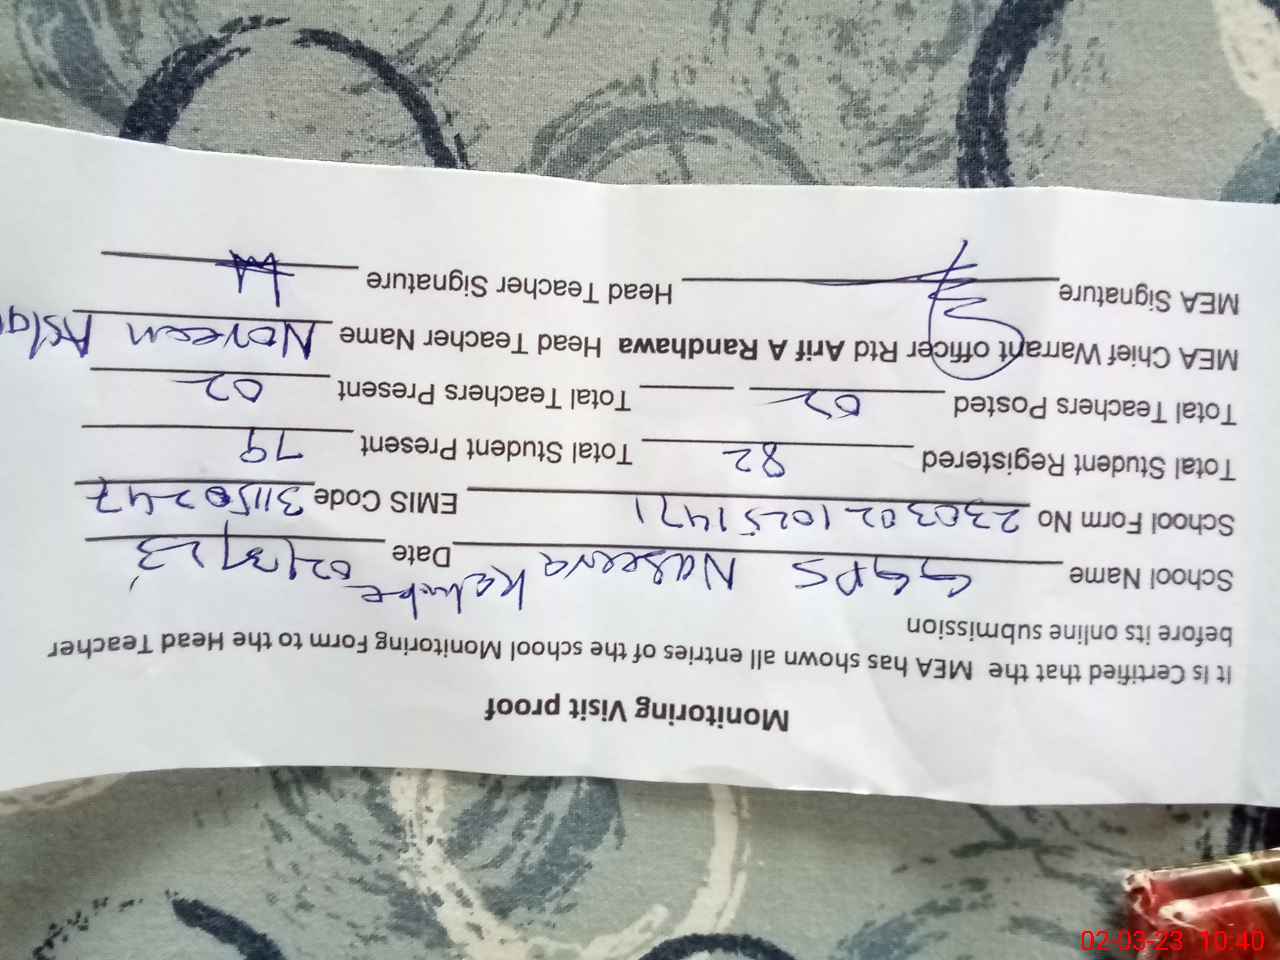 Monitoring Visit proof
It Is Certified that the MEA has shown all entries of the school Monitoring Form to the Head Teacher
before its online submission
School Name GGPS Naseera Date 02/3/23
School Form No 23030210251471 EMIS Code 31150247
Total Student Registered 82 Total Student Present 79
Total Teachers Posted 02 Total Teachers Present 02
MEA Chief Warrant officer Rtd Arif A Randhawa Head Teacher Name Noreen
MEA Signature Head Teacher Signature
02-03-23 10:40